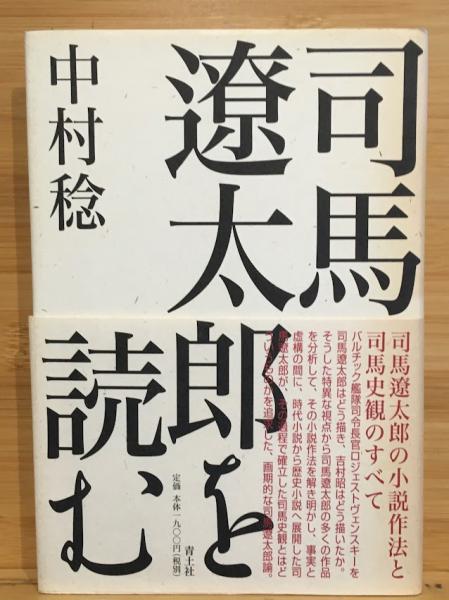 司馬
遼太郎を
読む
中村稔
司馬遼太郎の小説作法と
司馬史観のすべて
バルチック艦隊司令長官ロジェストヴェンスキーを
司馬遼太郎はどう描き、吉村昭はどう描いたか。
そうした特異な視点から司馬遼太郎の多くの作品
を分析して、その小説作法を解き明かし、事実と
虚構の間に、時代小説から歴史小説へ展開した司
馬遼太郎が、その過程で確立した司馬史観とはど
ういうものかを追求した、画期的な司馬遼太郎論。
青土社
定価 本体一九〇〇円(税別)